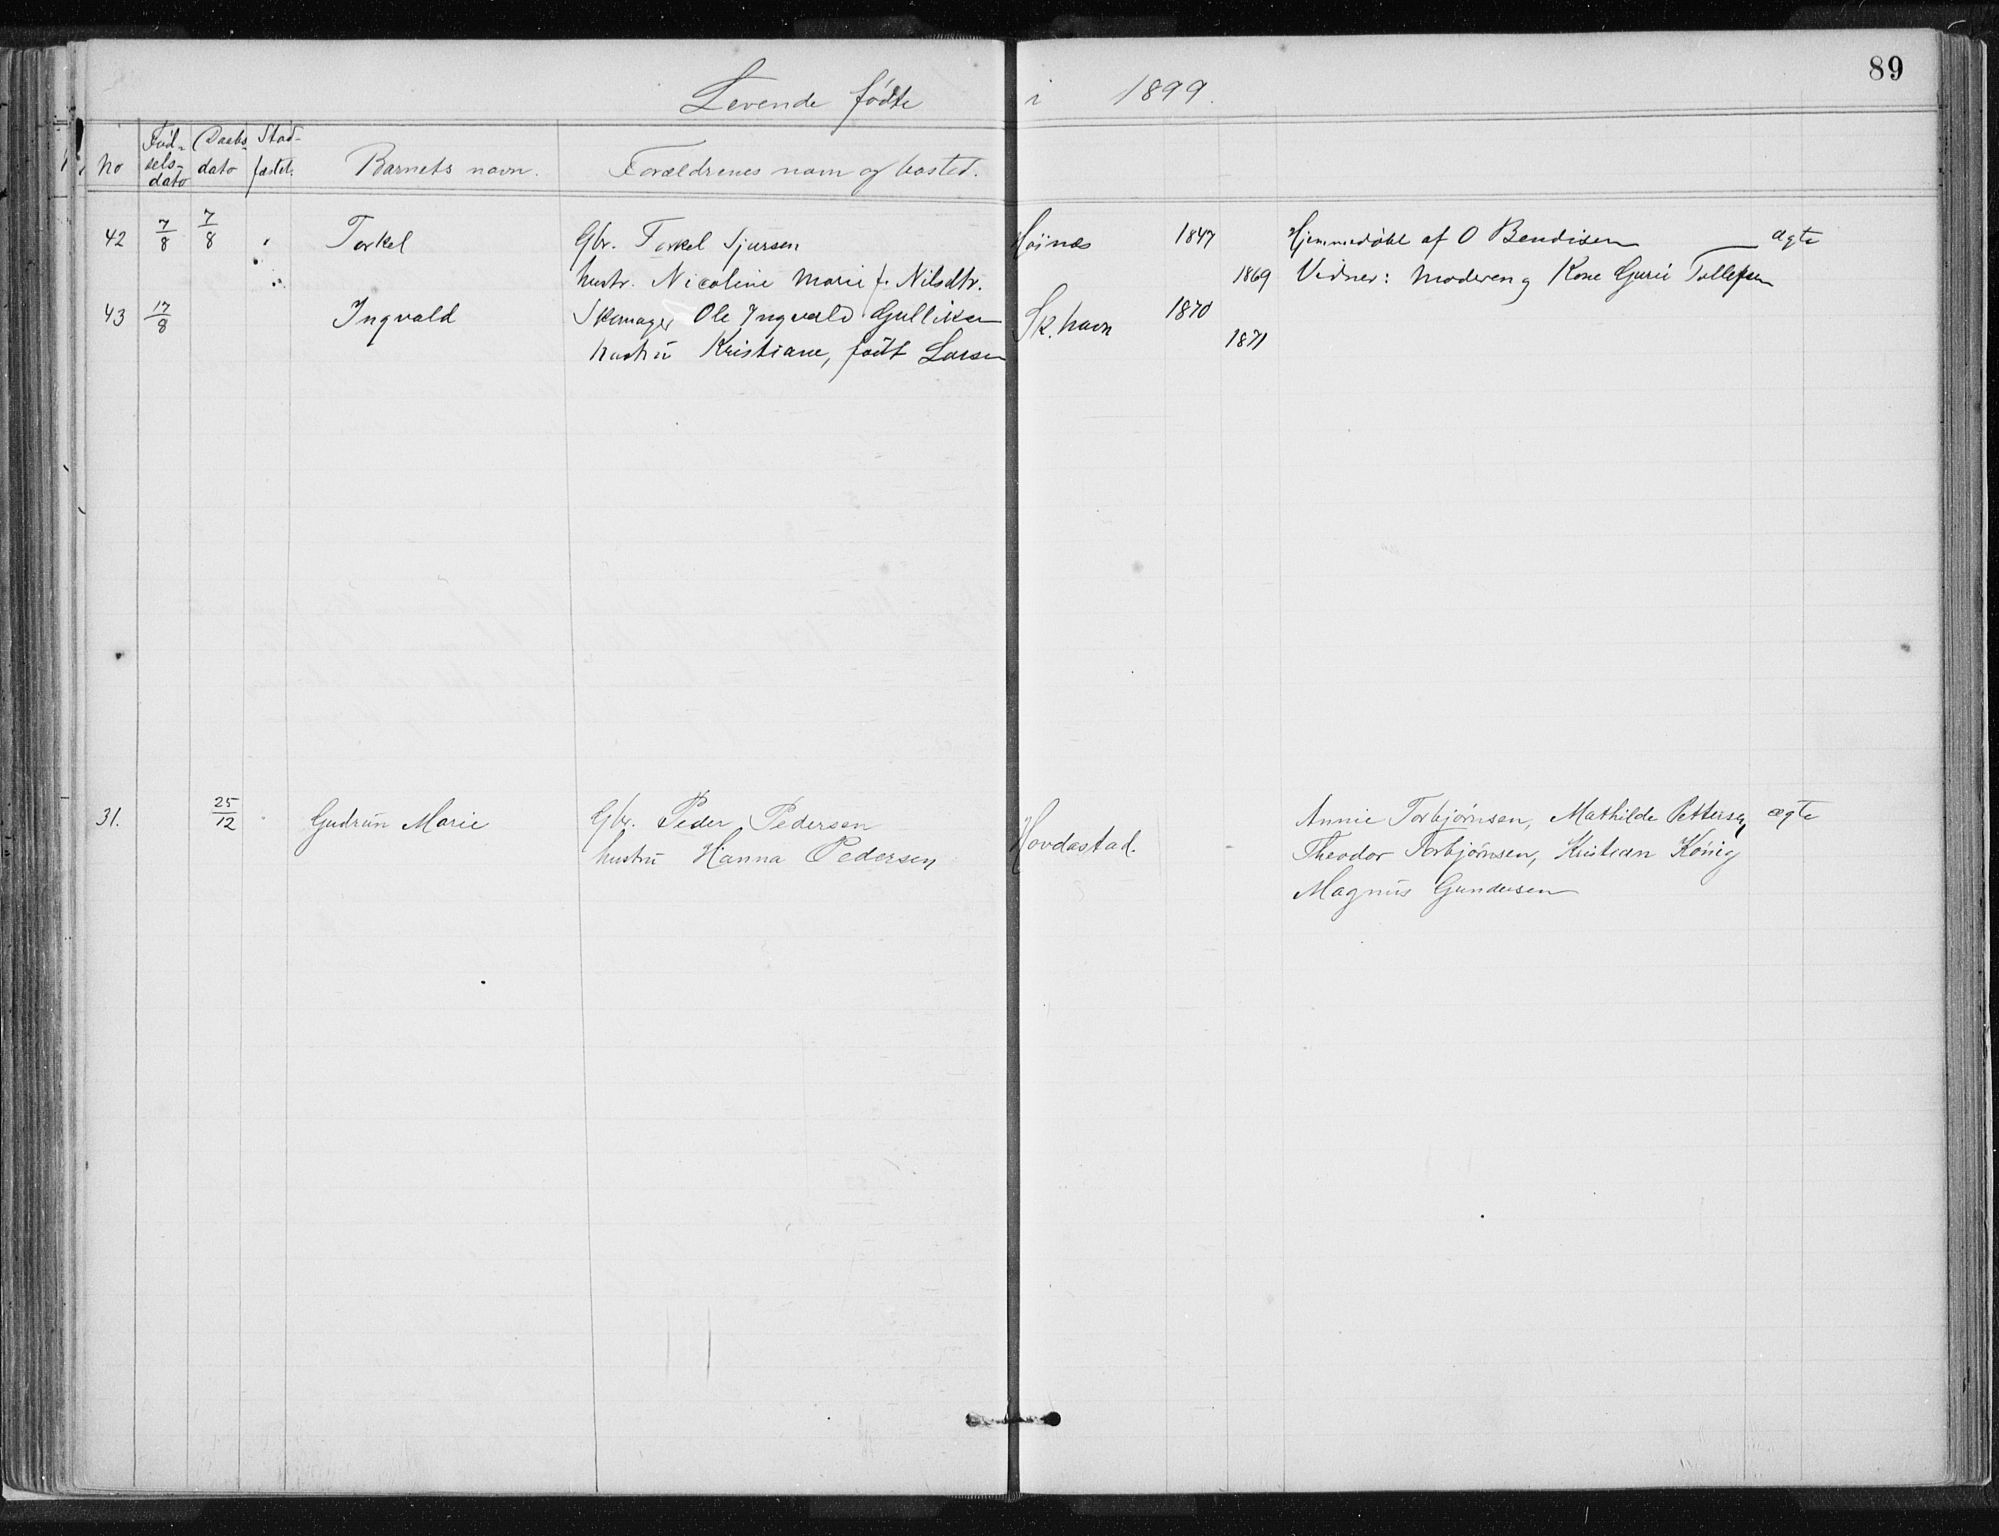 89
Levende fødte i 1899.
No Fød-selsdato Daabsdato Stadfæstet. Barnets navn. Forældrenes navn og bosted.
42 7/8 7/8 Torkel Gbr. Torkel Sjursen Høinæs 1847 Hjemmedøbt af O Bendixen ægte
hustr. Nicoline Marie f. Nilsdtr. 1869 Vidner: Moderen og Kone Guri Tollefsen
43 17/8 Ingvald Skomager Ole Ingvald Gulliksen Sk.havn 1870
hustrü Kristiane, født Larsen 1871
31. 25/12 Gudrün Marie Gbr. Peder Pedersen Hovdastad. Annie Torbjørnsen, Mathilde Pettersen, ægte
hustrü Hanna Pedersen Theodor Torbjørnsen, Kristian König
Magnüs Gundersen